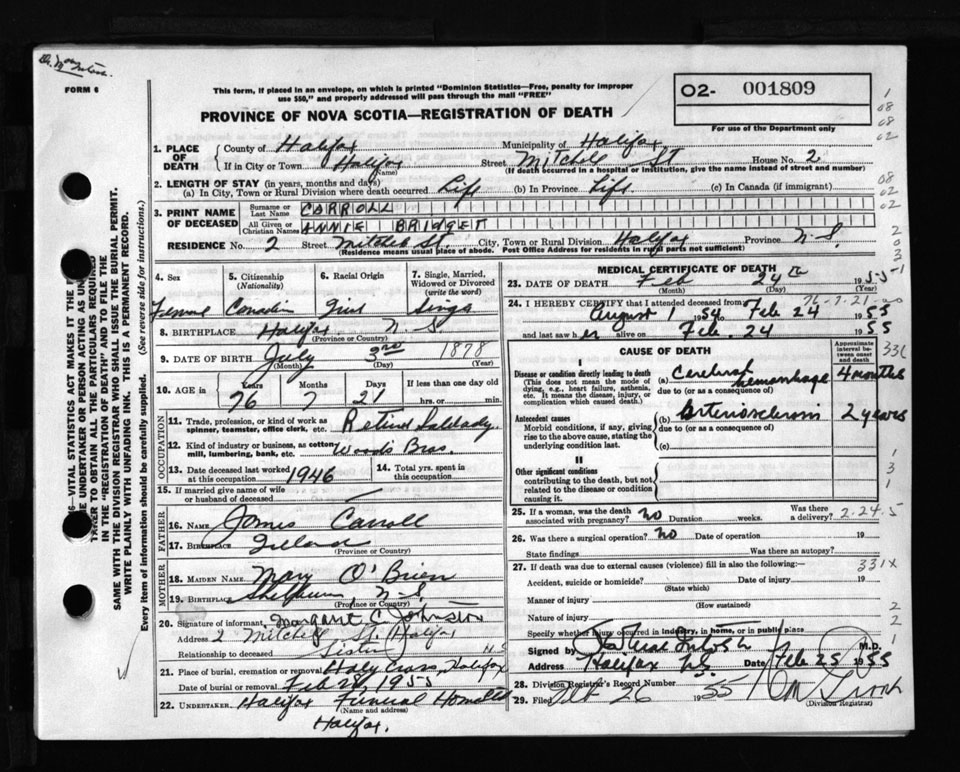 Dr. MacIntosh.
FORM 6
This form, if placed in an envelope, on which is printed "Dominion Statistics—Free, penalty for improper
use $50," and properly addressed will pass through the mail "FREE"
PROVINCE OF NOVA SCOTIA—REGISTRATION OF DEATH
O2- 001809
For use of the Department only
1. PLACE OF DEATH
County of Halifax Municipality of Halifax
If in City or Town Halifax (Name) Street Mitchell St House No. 2
(If death occurred in a hospital or institution, give the name instead of street and number)
2. LENGTH OF STAY (in years, months and days)
(a) In City, Town or Rural Division where death occurred Life (b) In Province Life (c) In Canada (if immigrant)
3. PRINT NAME OF DECEASED
Surname or Last Name CARROLL
All Given or Christian Names ANNIE BRIDGET
RESIDENCE No. 2 Street Mitchell St. City, Town or Rural Division Halifax Province N.S.
(Residence means usual place of abode. Post Office Address for residents in rural parts not sufficient)
4. Sex Female
5. Citizenship (Nationality) Canadian
6. Racial Origin Irish
7. Single, Married, Widowed or Divorced (write the word) Single
8. BIRTHPLACE Halifax N.S.
(Province or Country)
9. DATE OF BIRTH July 3rd 1878
(Month) (Day) (Year)
10. AGE in Years 76 Months 7 Days 21 If less than one day old hrs. or min.
OCCUPATION
11. Trade, profession, or kind of work as spinner, teamster, office clerk, etc. Retired Saleslady.
12. Kind of industry or business, as cotton mill, lumbering, bank, etc. Woods Bros.
13. Date deceased last worked at this occupation 1946
14. Total yrs. spent in this occupation
15. If married give name of wife or husband of deceased
FATHER
16. NAME James Carroll
17. BIRTHPLACE Ireland
(Province or Country)
MOTHER
18. MAIDEN NAME Mary O'Brien
19. BIRTHPLACE Shelburne, N.S.
(Province or Country)
20. Signature of informant Margaret C. Johnston
Address 2 Mitchell St. Halifax N.S.
Relationship to deceased Sister
21. Place of burial, cremation or removal Holy Cross, Halifax
Date of burial or removal Feb 28, 1955
22. UNDERTAKER Halifax Funeral Home Ltd
(Name and address)
Halifax.
MEDICAL CERTIFICATE OF DEATH
23. DATE OF DEATH Feb 24th 1955
(Month) (Day) (Year)
76-7-21
24. I HEREBY CERTIFY that I attended deceased from
August 1 1954 to Feb 24 1955
and last saw her alive on Feb. 24 1955
CAUSE OF DEATH
Approximate interval between onset and death
I
Disease or condition directly leading to death
(This does not mean the mode of dying, e.g., heart failure, asthenia, etc. It means the disease, injury, or complication which caused death.)
(a) Cerebral hemorrhage 4 months
due to (or as a consequence of)
Antecedent causes
Morbid conditions, if any, giving rise to the above cause, stating the underlying condition last.
(b) Arteriosclerosis 2 years
due to (or as a consequence of)
(c)
II
Other significant conditions
contributing to the death, but not related to the disease or condition causing it.
25. If a woman, was the death associated with pregnancy? No Duration weeks. Was there a delivery?
2-24-5
26. Was there a surgical operation? No Date of operation 19
State findings Was there an autopsy?
27. If death was due to external causes (violence) fill in also the following:—
331X
Accident, suicide or homicide? Date of injury 19
(State which)
Manner of injury
(How sustained)
Nature of injury
Specify whether injury occurred in industry, in home, or in public place
Signed by M.D.
Address Halifax N.S. Date Feb 25 1955
28. Division Registrar's Record Number
29. Filed Feb 26 1955
(Division Registrar)
SAME WITH THE DIVISION REGISTRAR WHO SHALL ISSUE THE BURIAL PERMIT.
WRITE PLAINLY WITH UNFADING INK. THIS IS A PERMANENT RECORD.
Every item of information should be carefully supplied. (See reverse side for instructions.)